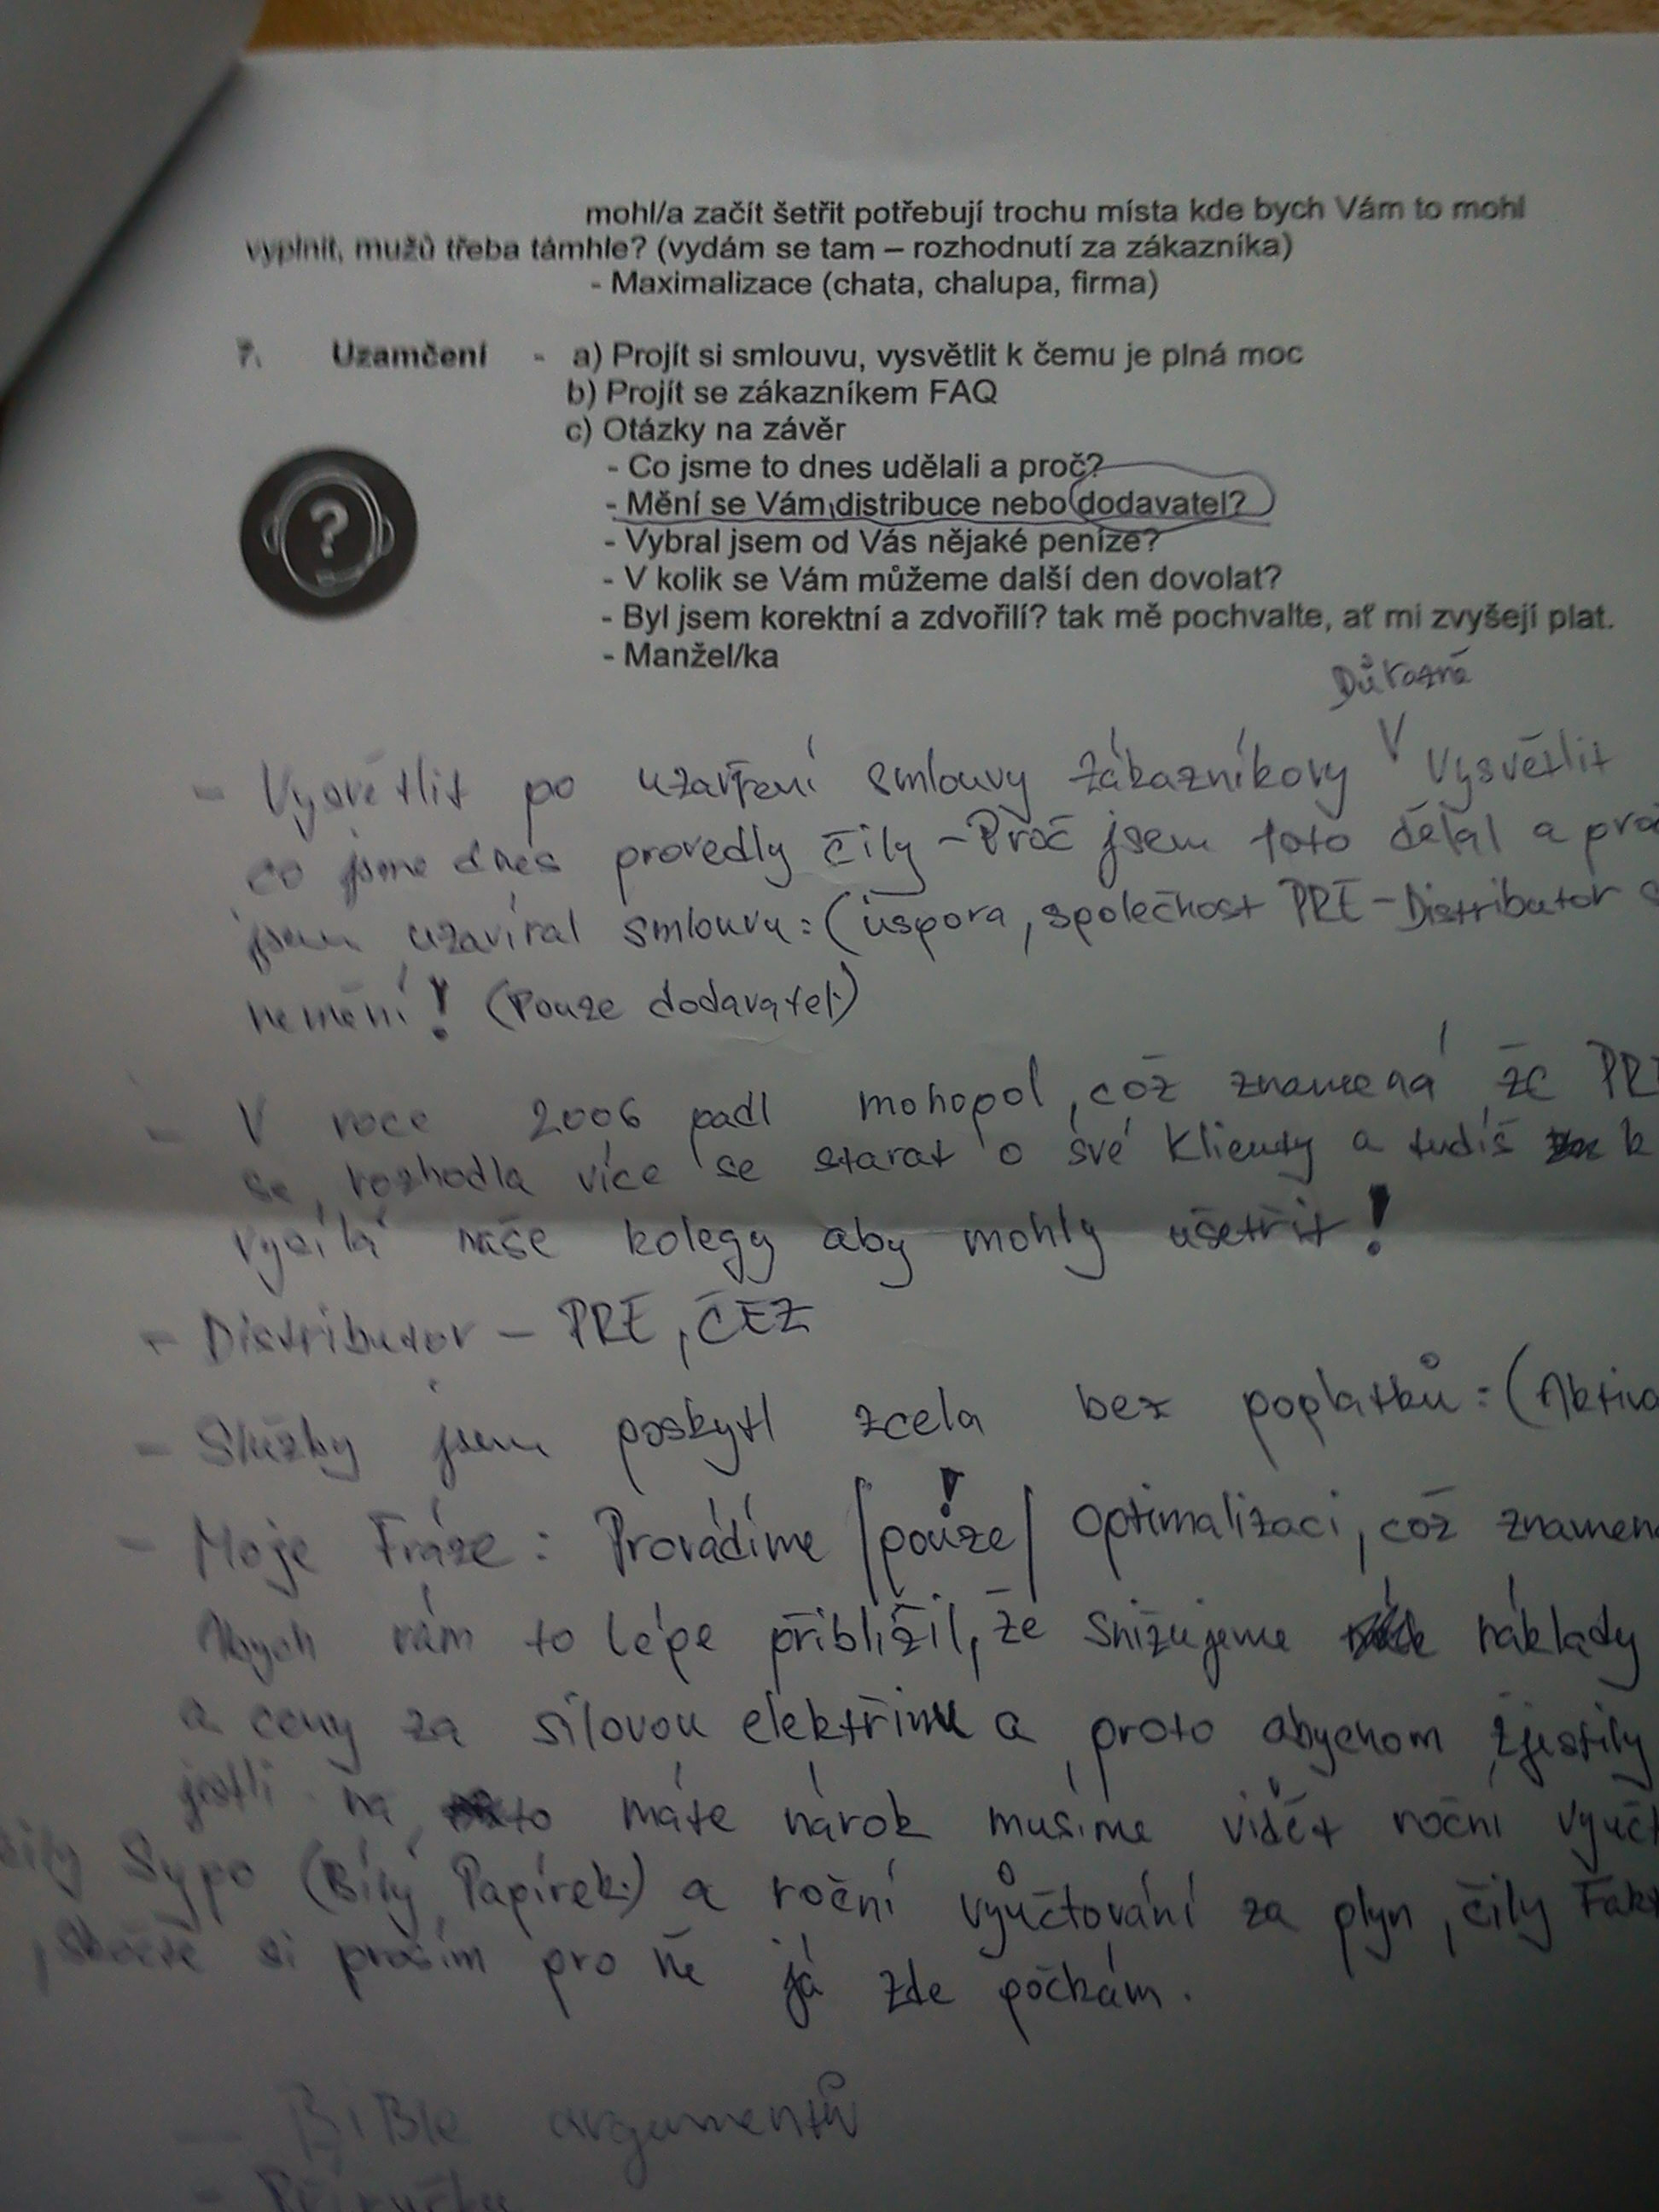 mohl/a začít šetřit potřebují trochu místa kde bych Vám to mohl
vyplnit, mužů třeba támhle? (vydám se tam – rozhodnutí za zákazníka)
- Maximalizace (chata, chalupa, firma)
7. Uzamčení - a) Projít si smlouvu, vysvětlit k čemu je plná moc
b) Projít se zákazníkem FAQ
c) Otázky na závěr
- Co jsme to dnes udělali a proč?
- Mění se Vám distribuce nebo dodavatel?
- Vybral jsem od Vás nějaké peníze?
- V kolik se Vám můžeme další den dovolat?
- Byl jsem korektní a zdvořilí? tak mě pochvalte, ať mi zvyšejí plat.
- Manžel/ka
Důrazně
- Vysvětlit po uzavření smlouvy zákazníkovy V vysvětlit
co jsme dnes provedly čily - Proč jsem toto dělal a
jsem uzavíral smlouvu: (úspora, společnost PRE - Distributor
nemění! (Pouze dodavatel)
- V roce 2006 padl mohopol, což znamená že
se rozhodla více se starat o své klienty a tudíš k
vysílá naše kolegy aby mohly ušetřit!
- Distributor - PRE, ČEZ
- Služby jsem poskytl zcela bez poplatků: (
- Moje Fráze: Provádíme |pouze| ! optimalizaci, což
Abych vám to lépe přiblížil, že snižujeme náklady
a ceny za silovou elektřinu a proto abychom zjistily
jestli na to máte nárok musíme vidět roční
čily Sypo (Bílý Papírek) a roční vyůčtování za plyn, čily
, skočte si prosím pro ně já zde počkám.
- BiBle argumentů
- Příručka